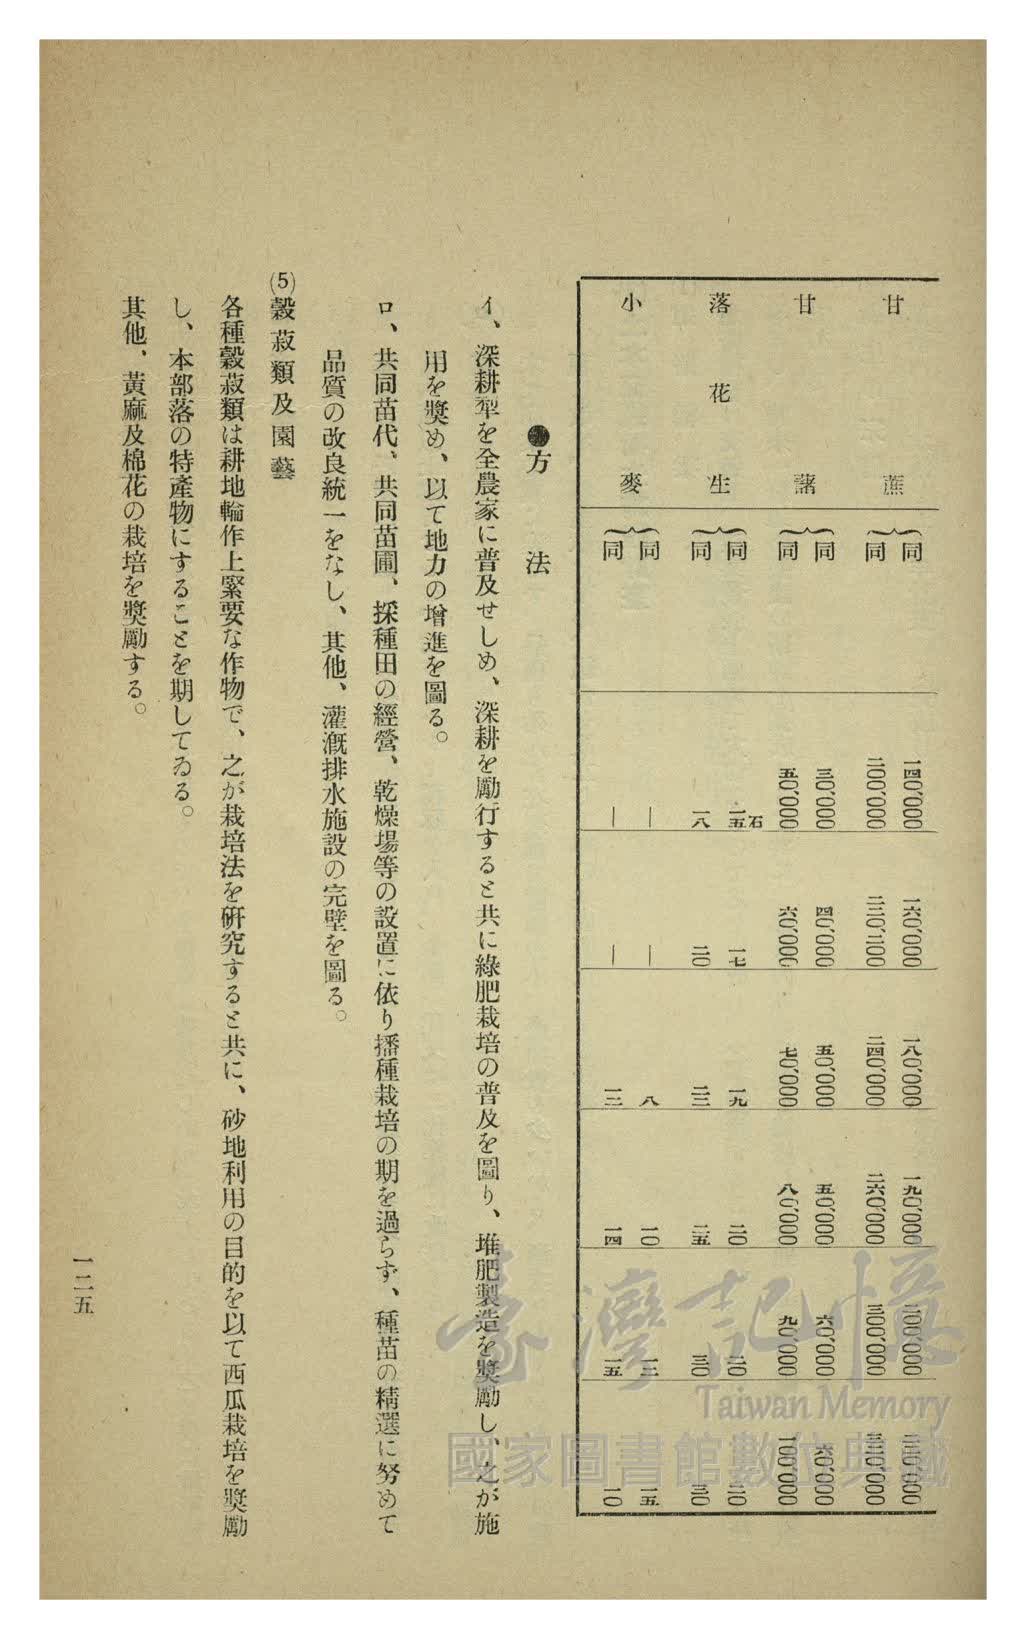 甘蔗 同 一四0,000 一六0,000 一八0,000 一九0,000
同 二00,000 二三0,二00 二四0,000 二六0,000 三00,000
甘藷 同 三0,000 四0,000 五0,000 五0,000 六0,000 六0,000
同 五0,000 六0,000 七0,000 八0,000 九0,000 100,000
落花生 同 一五石 一七 一九 二0 二0 二0
同 一八 二0 二二 二五 三0 三0
小麥 同 — — 八 一0 一二 一五
同 — — 一二 一四 一五
●方法
イ、深耕犂を全農家に普及せしめ、深耕を勵行すると共に綠肥栽培の普及を圖り、堆肥製造を奬勵し、之が施
用を奬め、以て地力の增進を圖る。
ロ、共同苗代、共同苗圃、採種田の經營、乾燥場等の設置に依り播種栽培の期を過らず、種苗の精選に努めて
品質の改良統一をなし、其他、灌漑排水施設の完壁を圖る。
(5)穀菽類及園藝
各種穀菽類は耕地輪作上緊要な作物で、之が栽培法を硏究すると共に、砂地利用の目的を以て西瓜栽培を奬勵
し、本部落の特產物にすることを期してゐる。
其他、黃麻及棉花の栽培を奬勵する。
一二五
臺灣記憶
Taiwan Memory
國家圖書館數位典藏